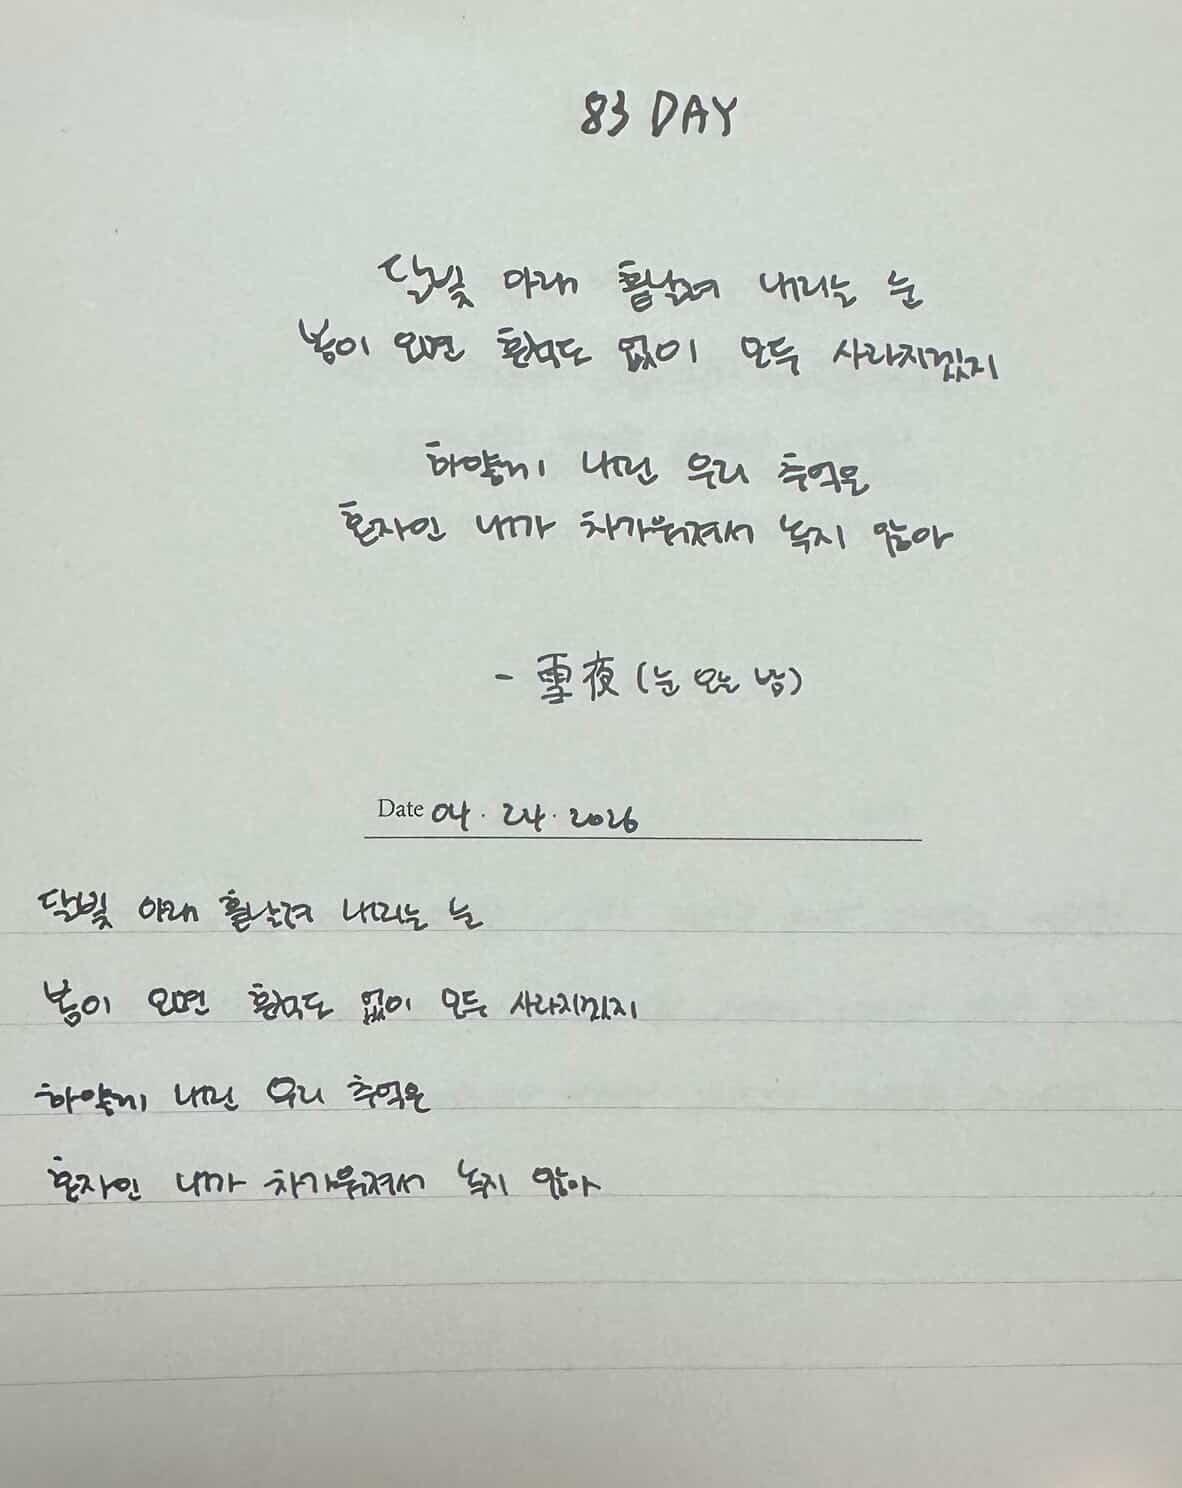 83 DAY
달빛 아래 흩날려 내리는 눈
봄이 오면 흔적도 없이 모두 사라지겠지
하얗게 내린 우리 추억은
혼자인 내가 차가워져서 녹지 않아
- 雪夜 (눈 오는 밤)
Date 04. 24. 2026
달빛 아래 흩날려 내리는 눈
봄이 오면 흔적도 없이 모두 사라지겠지
하얗게 내린 우리 추억은
혼자인 내가 차가워져서 녹지 않아